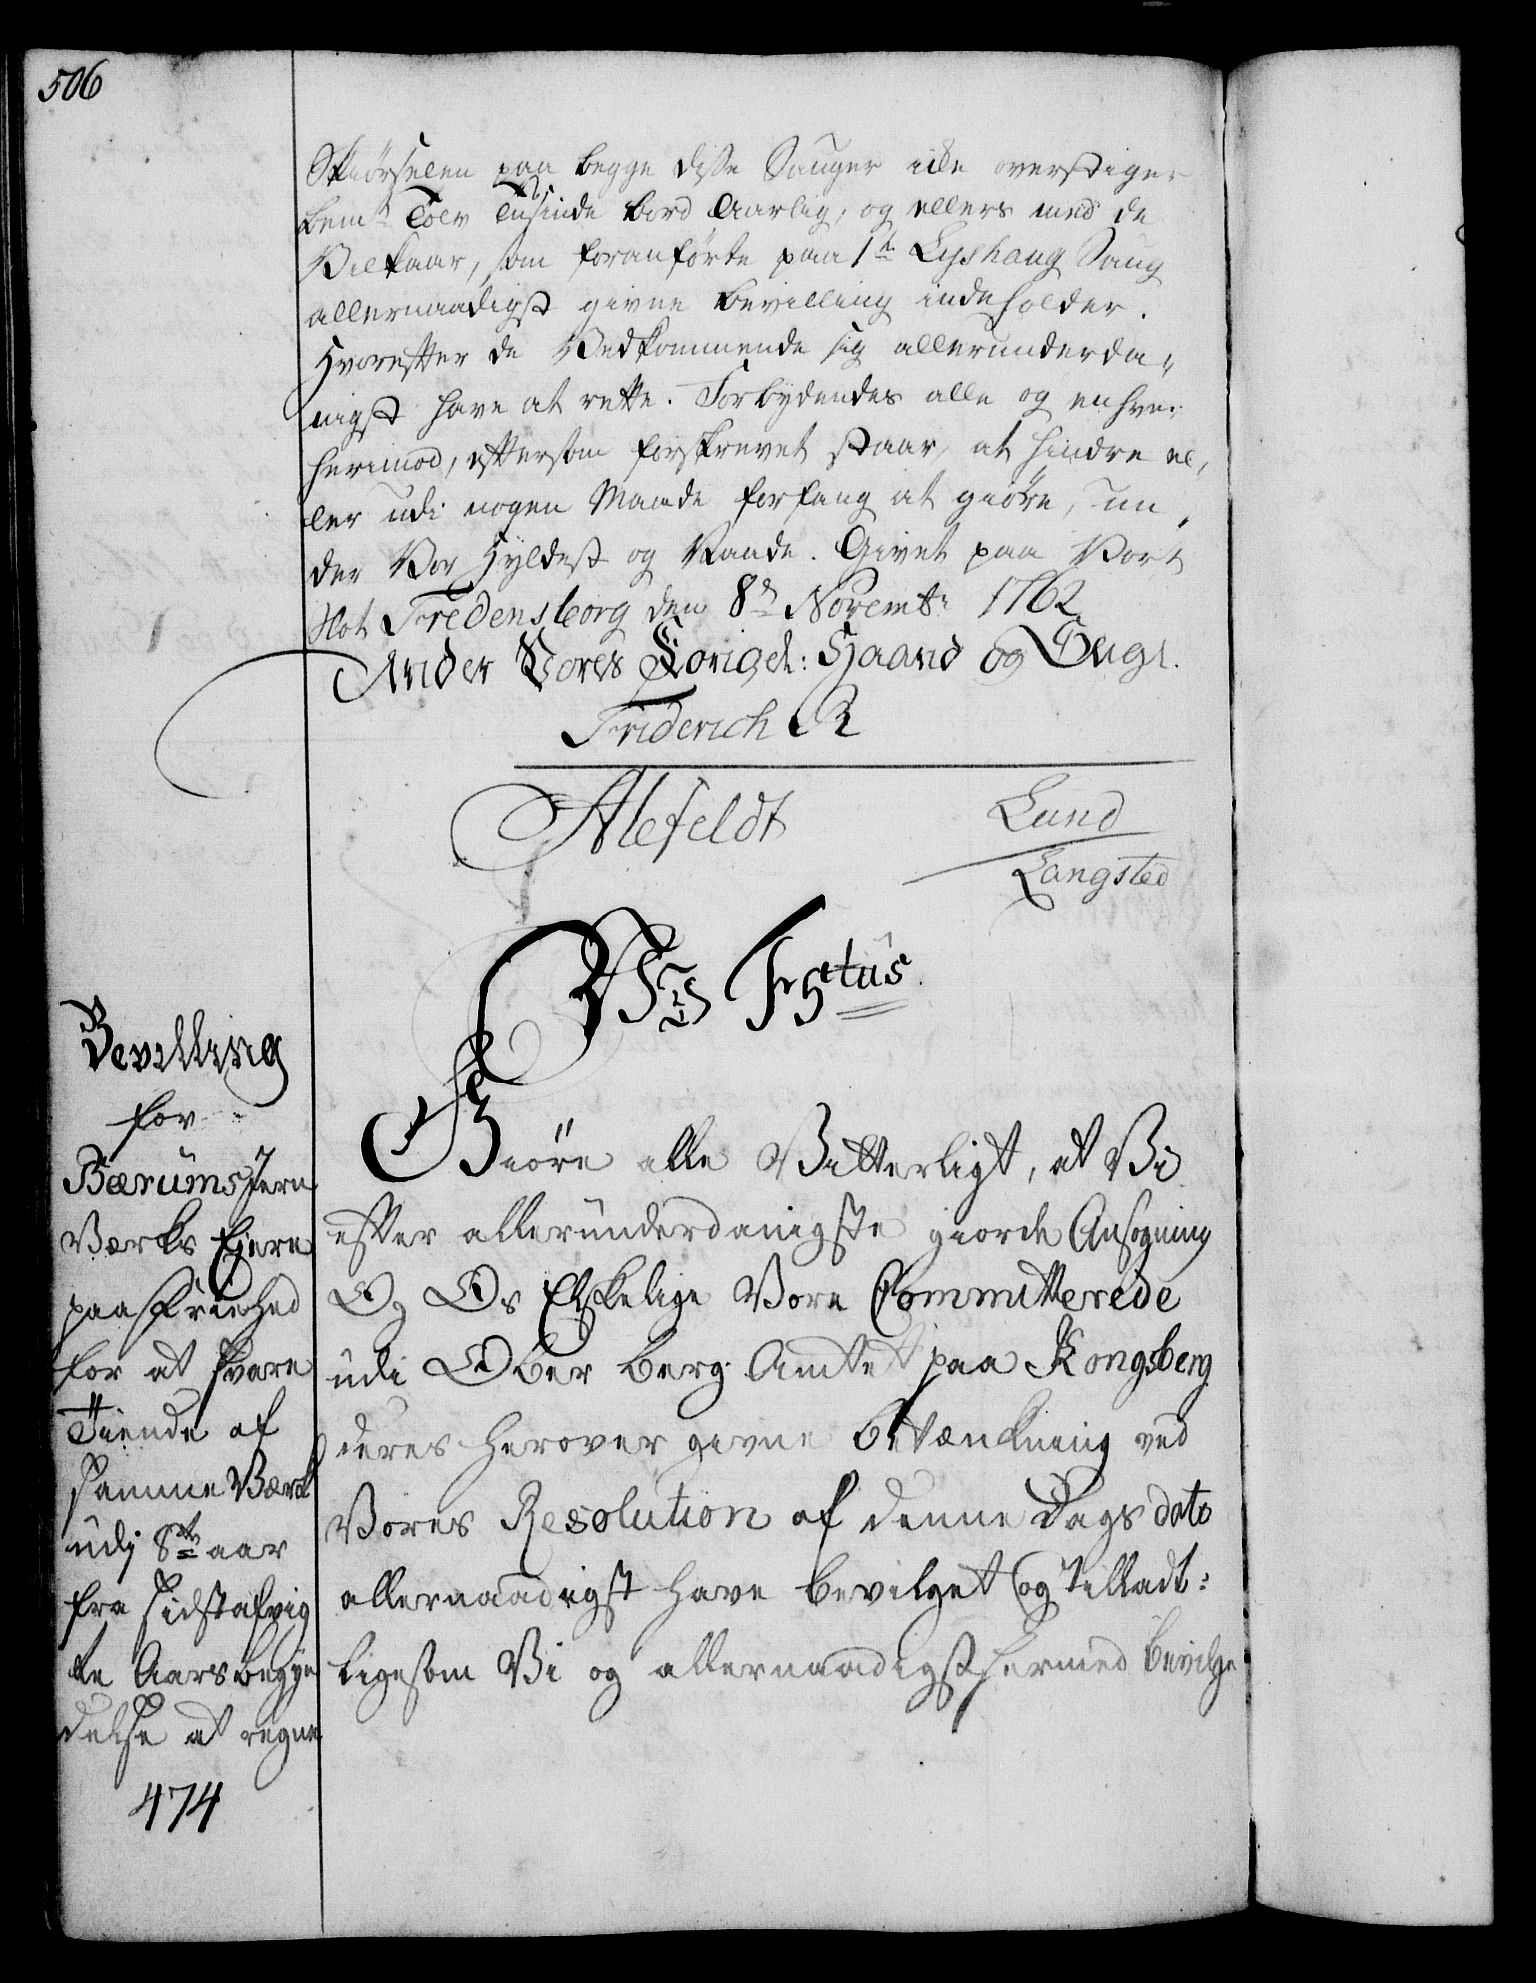 506
Skiørselen paa begge disse Sauger icke overstiger
bemte Tolv Tusinde bord Aarlig, og ellers med de
Vilkaar, som foranførte paa Lyshaug Saug
allernaadigst givne bevilling indeholder.
Hvorefter de Vedkommende sig allerunderda„
nigst have at rette. Forbydendes alle og enhver
herimod, eftersom forskrevet staar, at hindre el„
ler udi nogen Maade forfang at giøre, un„
der Vor Hyldest og Naade. Givet paa Vort
Slot Fredensborg den 8de Novembr 1762
Under Vores Kongel: Haand og Segl.
Friderich R
Alefeldt
Lund
Langsted
Wii Fr 5tus.
Bevilling
for
Bærums Jern
Værks Ejere
paa Friehed
for at svare
Tiende af
samme Værk
udj 8te aar
fra sidstafvig
te Aars begyn
delse at regne
474
Giøre alle Vitterligt, at Vi
efter allerunderdanigste giorde Ansøgning
Og Os Elskelige Vore Committerede
udi Ober Berg Amtet paa Kongsberg
deres herover givne Betænkning ved
Vores Resolution af denne Dags dato
allernaadigst have bevilget og tilladt:
ligesom Vi og allernaadigst hermed bevilge